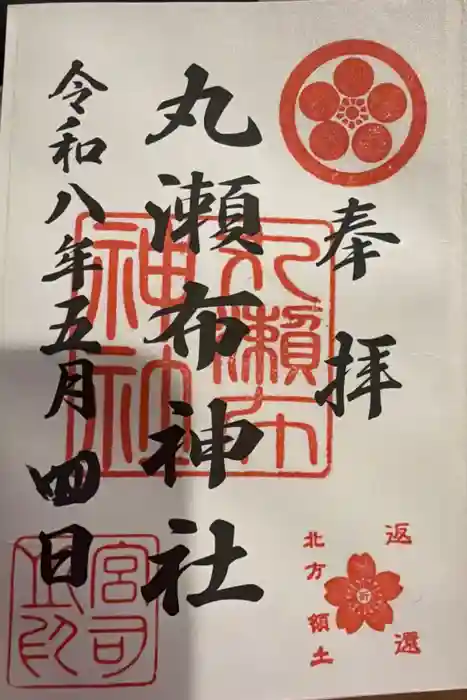 奉拝
丸瀬布神社
令和八年五月四日
丸瀬布
神社
宮司
之印
返還
北方領土
祈